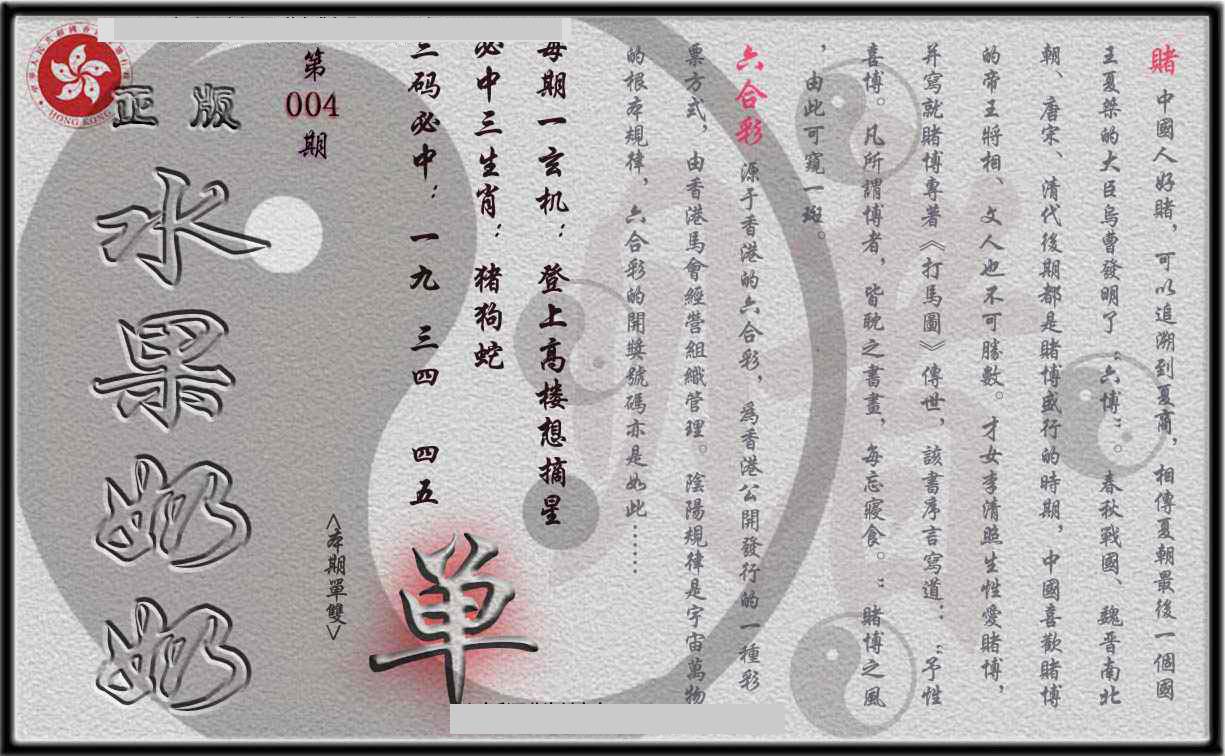 賭 中國人好賭，可以追溯到夏商，相傳夏朝最後一個國
王夏桀的大臣烏曹發明了“六博”。春秋戰國、魏晉南北
朝、唐宋、清代後期都是賭博盛行的時期，中國喜歡賭博
的帝王將相、文人也不可勝數。才女李清照生性愛賭博，
并寫就賭博專著《打馬圖》傳世，該書序言寫道：“予性
喜博。凡所謂博者，皆耽之書畫，每忘寢食。”賭博之風
，由此可窺一斑。
六合彩 源于香港的六合彩，為香港公開發行的一種彩
票方式，由香港馬會經營組織管理。陰陽規律是宇宙萬物
的根本規律，六合彩的開獎號碼亦是如此……
每期一玄机：登上高楼想摘星
必中三生肖：猪狗蛇
三码必中：一九 三四 四五
<本期單雙>
单
第
004
期
正版
水果奶奶
HONG KONG